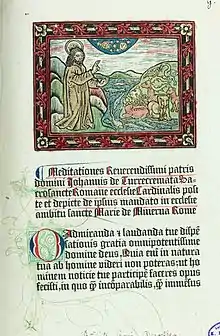 Meditationes Reuerendissimi patris
domini Johannis de Turrecremata Sa
crosancte Romane ecclesie Cardinalis posi
te et depicte de ipsius mandato in ecclesie
ambitu sancte Marie de Minerua Rome
Admiranda et laudanda tue dispē
sationis gratia omnipotentissime
domine deus, Quia cui in natura
tua ab homine videri non poteras: ut ho
minem noticie tue participē faceres opus
fecisti, in quo qꝫ incoparabilis, qꝫ immēsus